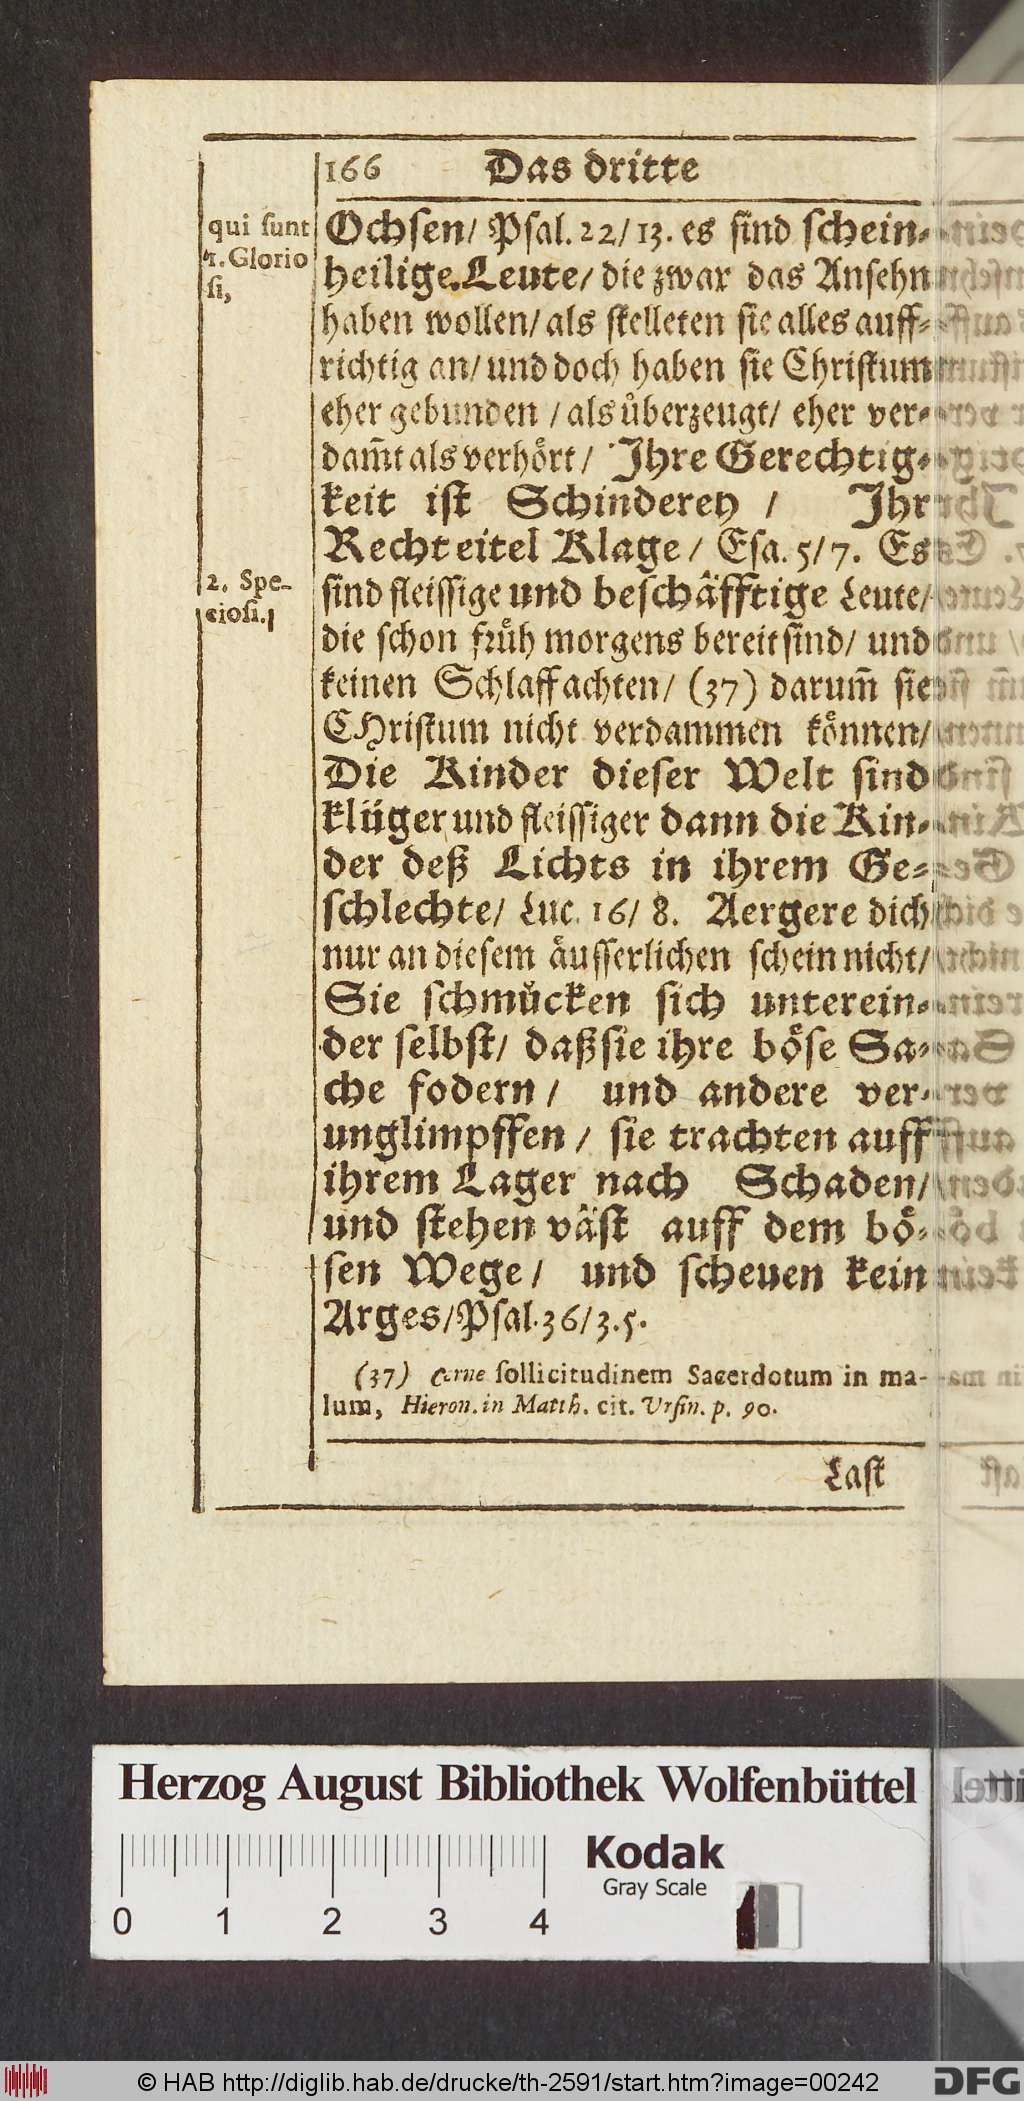 166 Das dritte
qui ſunt
1. Glorio
ſi,
Ochſen/ Pſal. 22/13. es ſind ſchein-
heilige Leute/ die zwar das Anſehn
haben wollen/ als ſtelleten ſie alles auff-
richtig an/ und doch haben ſie Chriſtum
eher gebunden / als uͤberzeugt/ eher ver-
dam̃t als verhoͤrt/ Ihre Gerechtig-
keit iſt Schinderey / Ihr
Recht eitel Klage/ Eſa. 5/7. Es
2. Spe-
cioſi.
ſind fleiſſige und beſchaͤfftige Leute/
die ſchon fruͤh morgens bereit ſind/ und
keinen Schlaff achten/ (37) darum̃ ſie
CHriſtum nicht verdammen koͤnnen/
Die Kinder dieſer Welt ſind
kluͤger und fleiſſiger dann die Kin-
der deß Lichts in ihrem Ge-
ſchlechte/ Luc. 16/ 8. Aergere dich
nur an dieſem aͤuſſerlichen ſchein nicht/
Sie ſchmuͤcken ſich unterein-
der ſelbſt/ daß ſie ihre boͤſe Sa-
che fodern/ und andere ver-
unglimpffen/ ſie trachten auff
ihrem Lager nach Schaden/
und ſtehen vaͤſt auff dem boͤ-
ſen Wege/ und ſcheuen kein
Arges/ Pſal. 36/3.5.
(37) Cerne ſollicitudinem Sacerdotum in ma-
lum, Hieron. in Matth. cit. Urſin. p. 90.
Laſt
Herzog August Bibliothek Wolfenbüttel
Kodak
Gray Scale
0 1 2 3 4
© HAB http://diglib.hab.de/drucke/th-2591/start.htm?image=00242
DFG